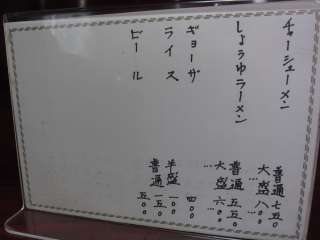 チャーシューメン 普通 七五〇
大盛 八〇〇
しょうゆラーメン 普通 五五〇
大盛 六〇〇
ギョーザ 四〇〇
ライス 半盛 一〇〇
普通 一五〇
ビール 五〇〇